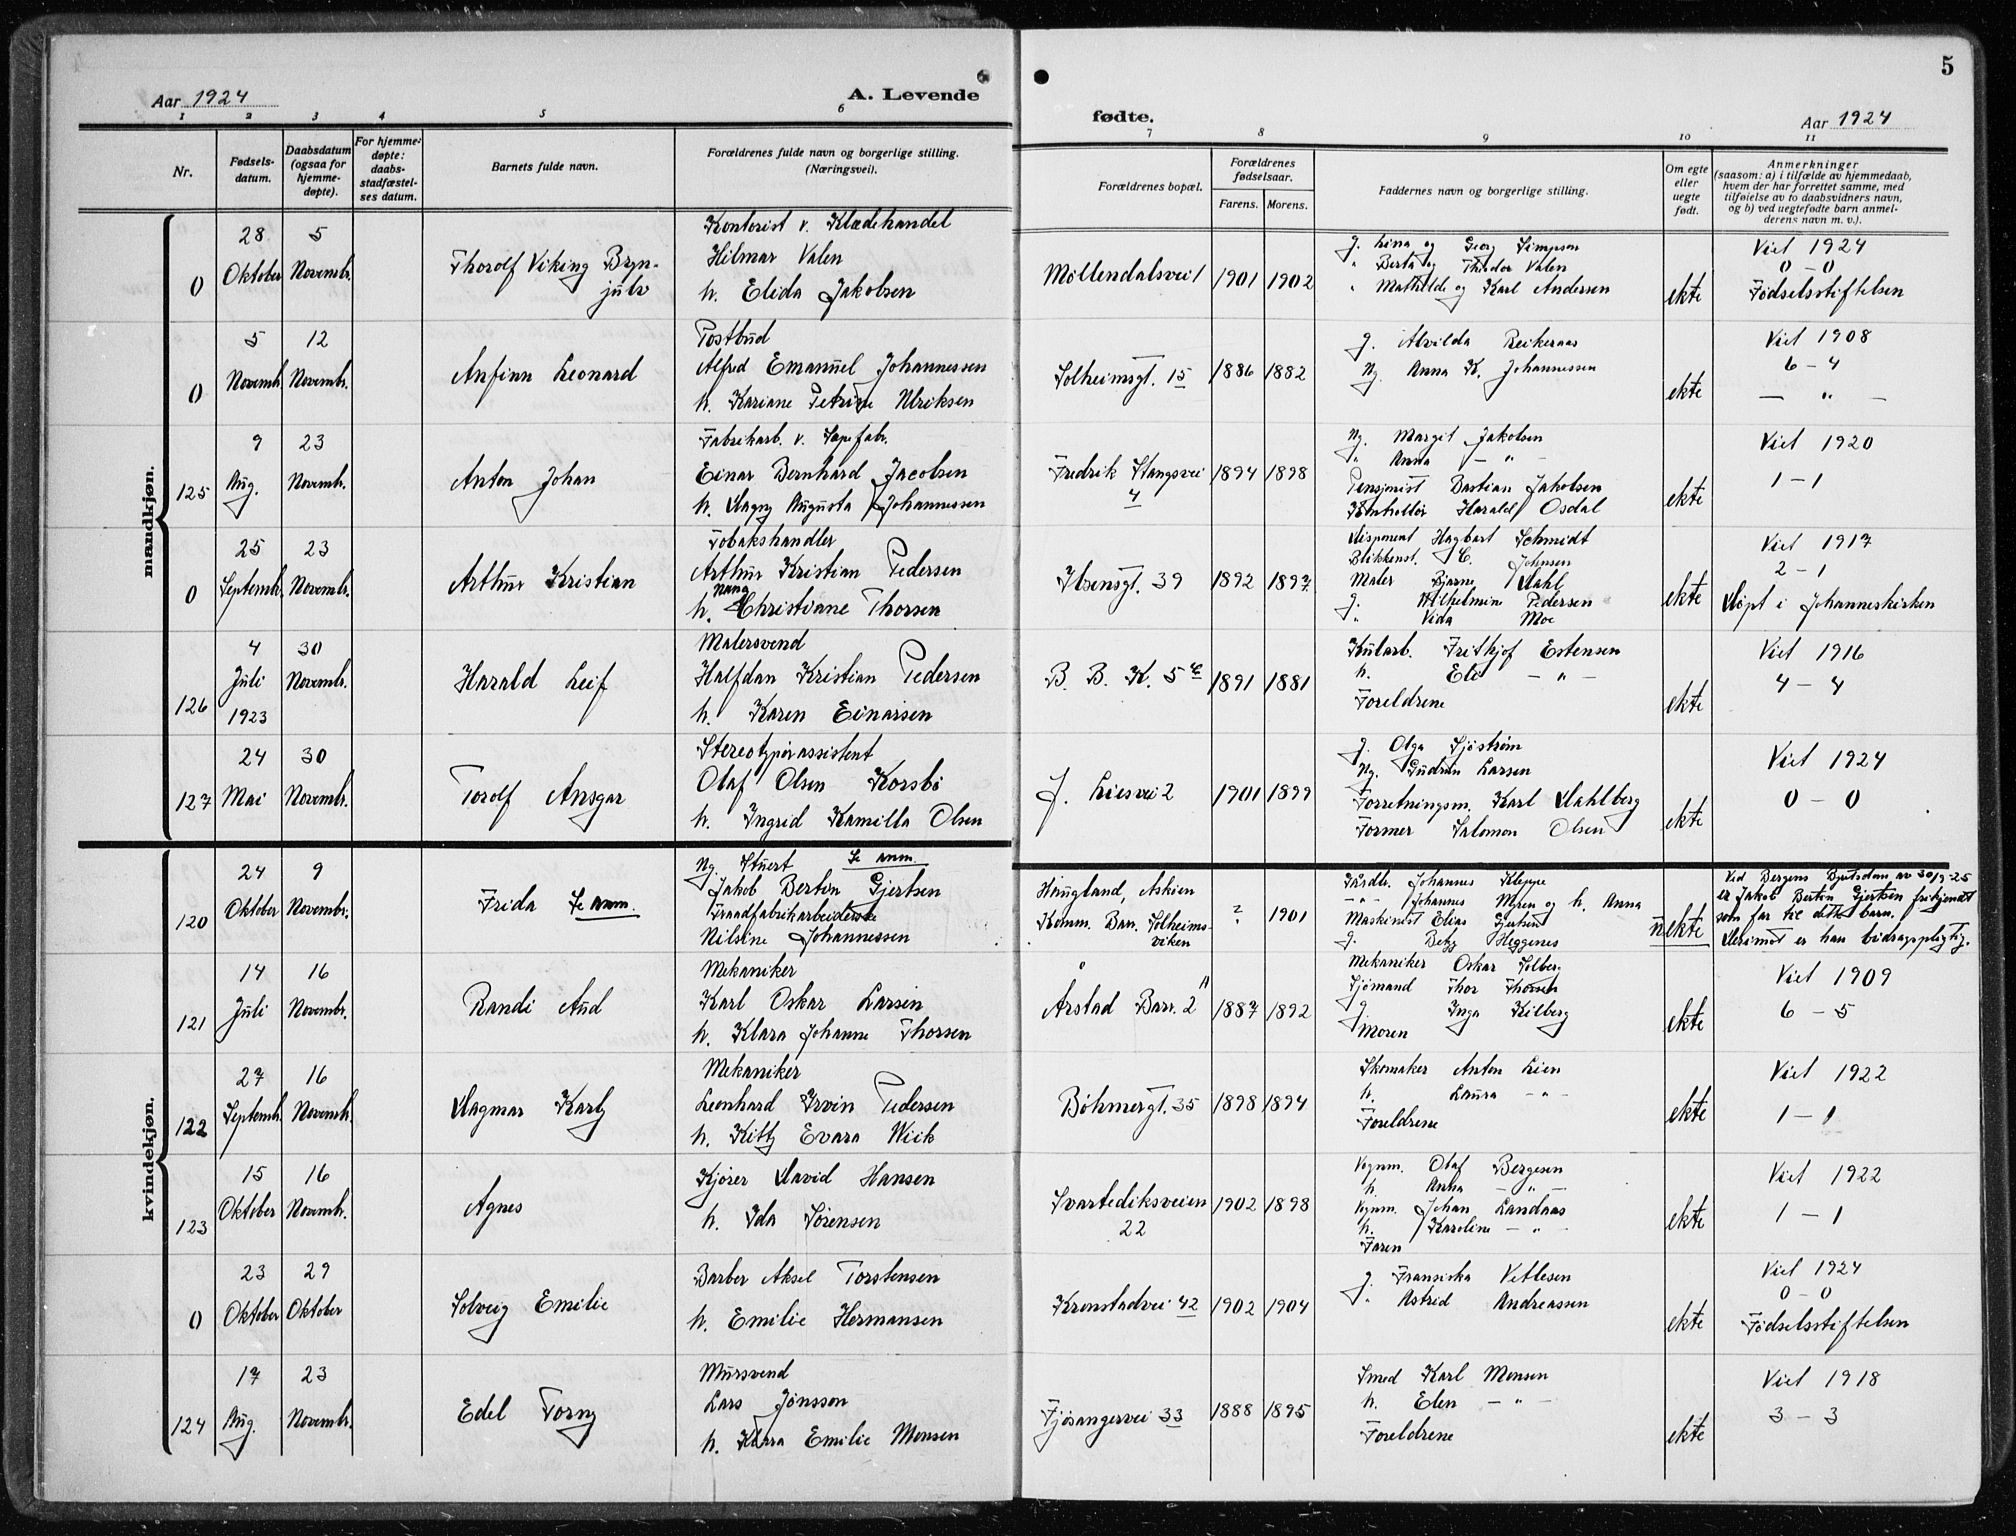 5
Aar 1924
A. Levende
fødte.
Aar 1924
1 2 3 4 5 6 7 8 9 10 11
Nr.
Fødsels-
datum.
Daabsdatum
(ogsaa for
hjemme-
døpte).
For hjemme-
døpte:
daabs-
stadfæstel-
ses datum.
Barnets fulde navn.
Forældrenes fulde navn og borgerlige stilling.
(Næringsveil.
Forældrenes bopæl.
Forældrenes
fødselsaar.
Farens. Morens.
Faddernes navn og borgerlige stilling.
Om egte
eller
uegte
født.
Anmerkninger
(saasom: a) i tilfælde av hjemmedaab,
hvem der har forrettet samme, med
tilføielse av to daabsvidners navn,
og b) ved uegtefødte barn anmel-
derens navn m. v.).
mandkjøn.
0
28
Oktober
5
Novembr.
Thorolf Viking Bryn-
julv
Kontorist v. Klædehandel
Hilmar Valen
h. Elida Jakobsen
Møllendalsvei 1
1901 1902
g. Lina og Georg Simpson
" Berta og Theodor Valen
" Mathilde og Karl Andersen
ekte
Viet 1924
0 – 0
Fødselsstiftelsen
0
5
Novembr.
12
Novembr.
Anfinn Leonard
Postbud
Alfred Emanuel Johannessen
h. Kariane Petrine Ulriksen
Solheimsgt. 15
1886 1882
g. Alvilda Reikeraas
Ug. Anna K. Johannessen
ekte
Viet 1908
6 – 4
— " —
125
9
Aug.
23
Novembr.
Anton Johan
Fabrikarb. v. Sapefabr.
Einar Bernhard Jacobsen
h. Dagny Augusta Johannessen
Fredrik Stangsvei
4
1894 1898
Ug. Margit Jakobsen
" Anna — " —
Pensjonist Bastian Jakobsen
Harald Osdal
ekte
Viet 1920
1 – 1
0
25
Septembr.
23
Novembr.
Arthur Kristian
Tobakshandler
Arthur Kristian Pedersen
Nanna
h. Christiane Thorsen
Ibsensgt. 39
1892 1897
Disponent Hagbart Schmidt
Blikkensl. C. Johnsen
Maler Bjarne Dahl
g. Wilhelmine Pedersen
" Vida Moe
ekte
Viet 1917
2 – 1
Døpt i Johanneskirken
126
4
Juli
1923
30
Novembr.
Harald Leif
Malersvend
Halfdan Kristian Pedersen
h. Karen Einarsen
B. B. K. 5 c
1891 1881
Kularb. Frithjof Estensen
h. Eli — " —
Foreldrene
ekte
Viet 1916
4 – 4
127
24
Mai
30
Novembr.
Torolf Ansgar
Stereotypørassistent
Olaf Olsen Korsbø
h. Ingrid Kamilla Olsen
J. Liesvei 2
1901 1899
g. Olga Sjøstrøm
Ug. Gudrun Larsen
Forretningsm. Karl Dahlberg
Former Salomon Olsen
ekte
Viet 1924
0 – 0
kvindekjøn.
120
24
Oktober
9
Novembr.
Frida Se anm.
Ug. Stuert Se anm.
Jakob Bertin Gjertsen
Traadfabrikarbeiderske
Nilsine Johannessen
Haugland, Askøen
Komm. Bar. Solheims-
viken
?
" 1901
Gårdbr. Johannes Kleppe
– " – Johannes Myren og h. Anna
Maskinist Elias Gjertsen
g. Betzy Heggenes
uekte
Ved Bergens Byretsdom av 30/9-25
er Jakob Bertin Gjertsen frikjendt
som far til dette barn.
Derimot er han bidragspligtig.
121
14
Juli
16
Novembr.
Randi Aud
Mekaniker
Karl Oskar Larsen
h. Klara Johanne Thorsen
Årstad Barr. 2 A
1887 1892
Mekaniker Oskar Solberg
Sjømand Thor Thorsen
g. Inga Kilberg
Moren
ekte
Viet 1909
6 – 5
122
27
Septembr.
16
Novembr.
Dagmar Karly
Mekaniker
Leonhard Irvin Pedersen
h. Kitty Evara Wiik
Bøhmergt. 35
1898 1894
Skomaker Anton Lien
h. Laura – " –
Foreldrene
ekte
Viet 1922
1 – 1
123
15
Oktober
16
Novembr.
Agnes
Kjører David Hansen
h. Ida Sørensen
Svartediksveien
22
1902 1898
Vognm. Olaf Bergesen
h. Anna – " –
Vognm. Johan Landaas
h. Karoline – " –
Faren
ekte
Viet 1922
1 – 1
0
23
Oktober
29
Oktober
Solveig Emilie
Barber Aksel Torstensen
h. Emilie Hermansen
Kronstadvei 42
1902 1904
g. Fransiska Vetlesen
" Astrid Andreassen
ekte
Viet 1924
0 – 0
Fødselsstiftelsen
124
17
Aug.
23
Novembr.
Edel Torny
Mursvend
Lars Jonsson
h. Klara Emilie Monsen
Fjøsangervei 33
1888 1895
Smed Karl Monsen
h. Elen – " –
Foreldrene
ekte
Viet 1918
3 – 3